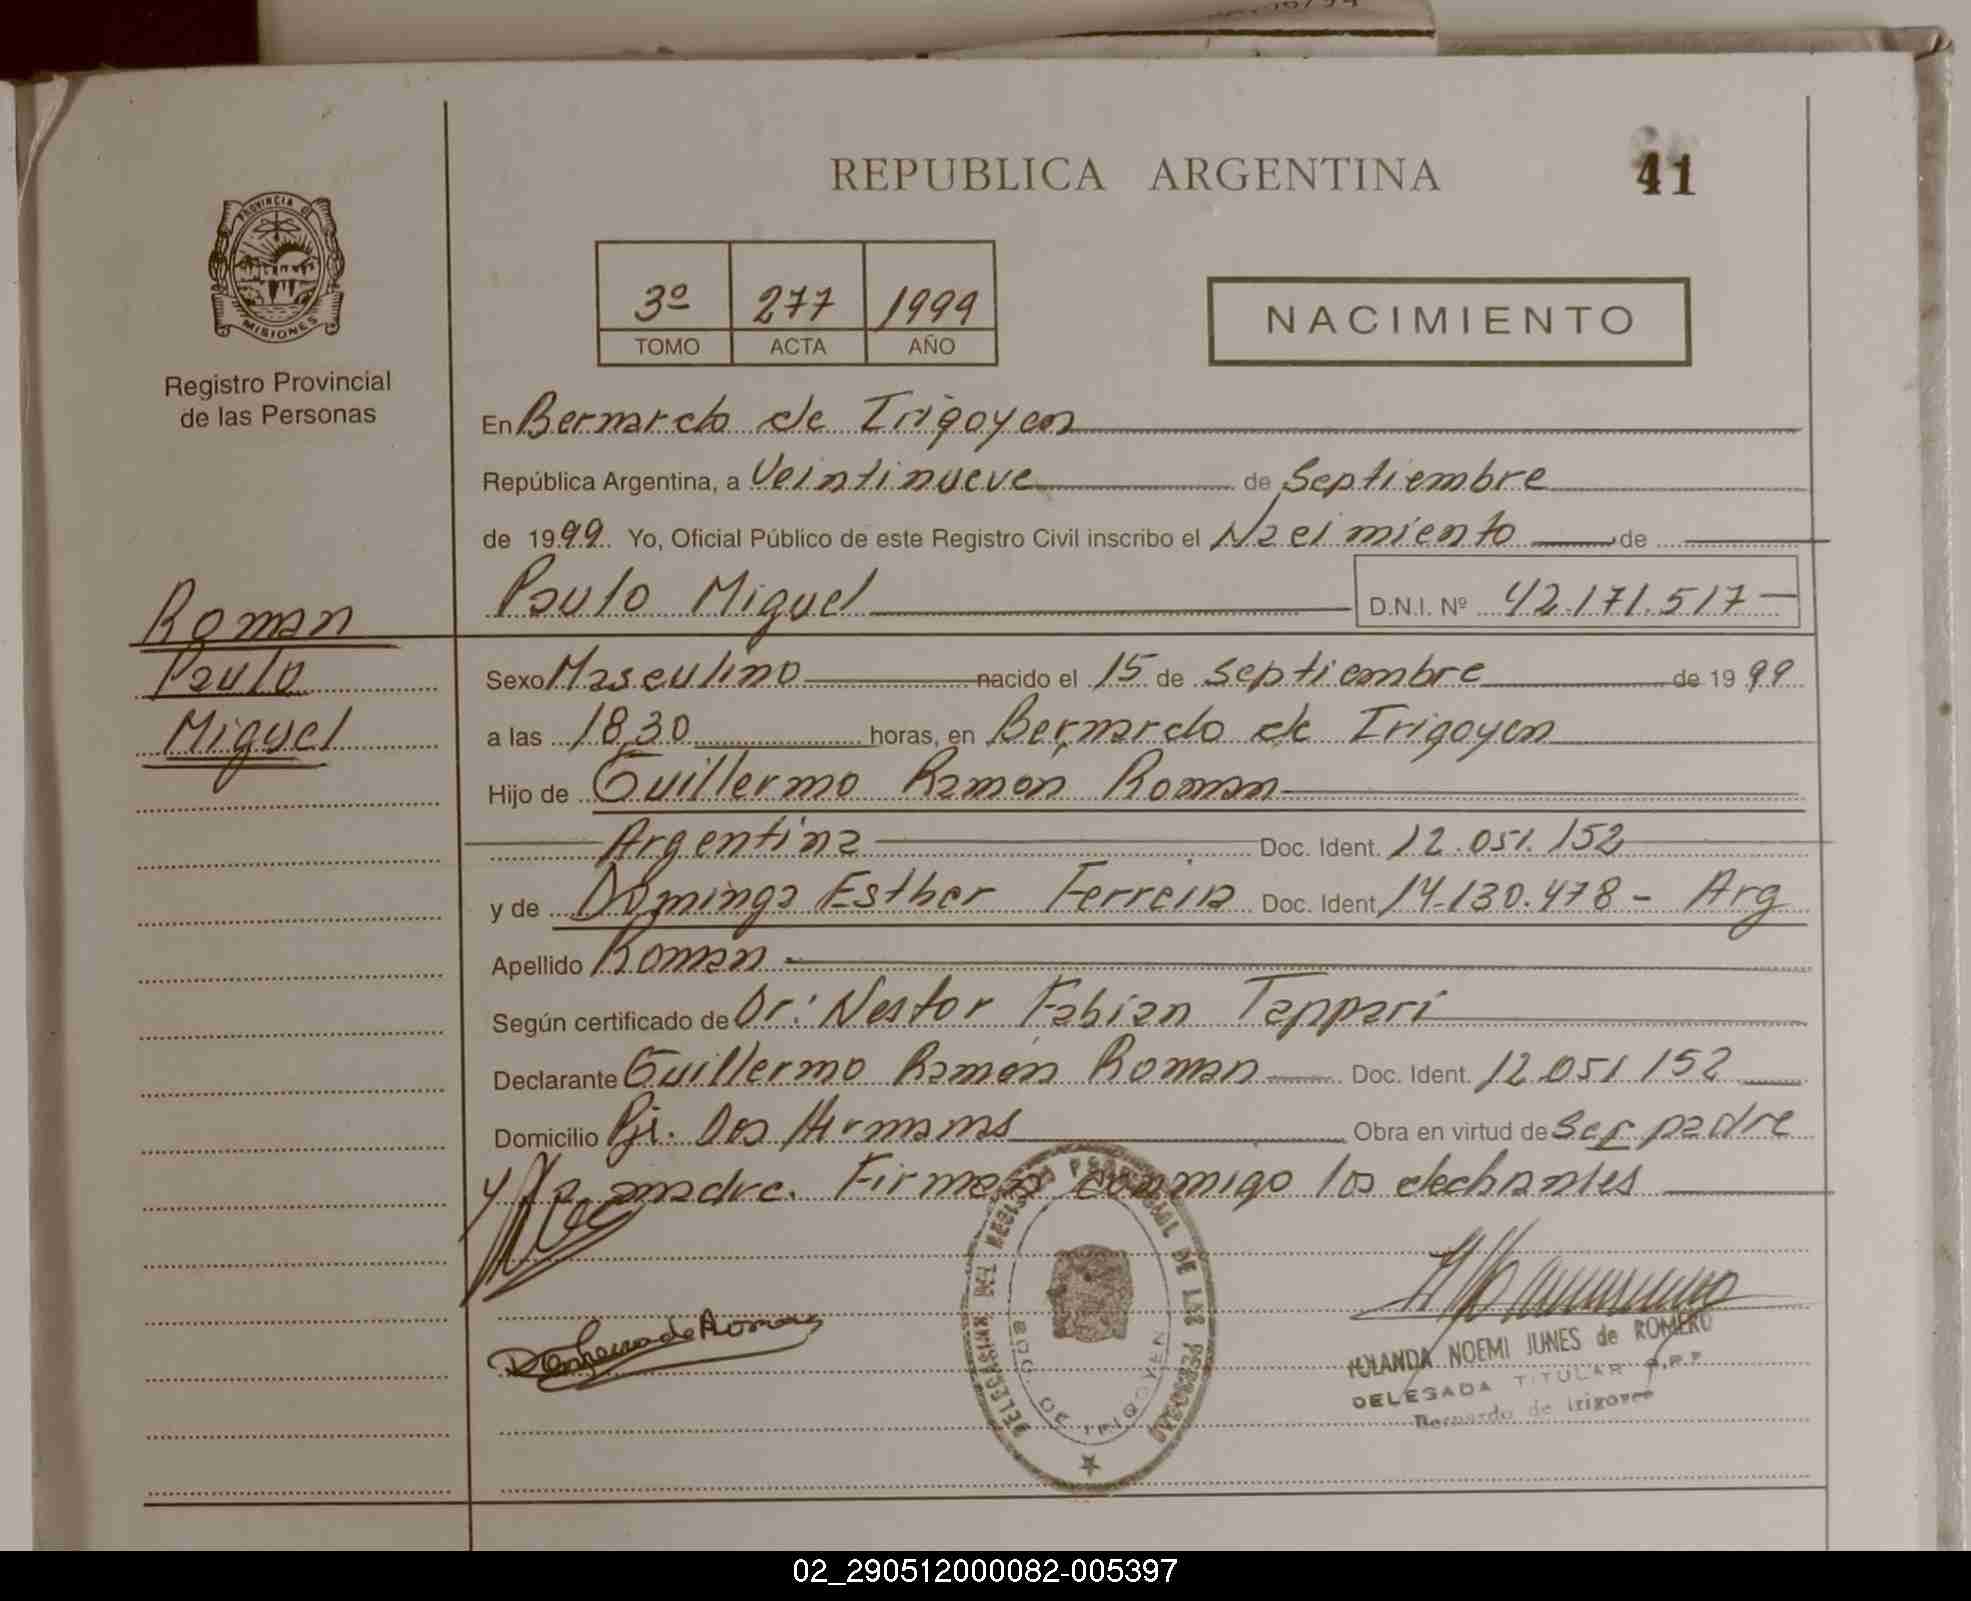 REPUBLICA ARGENTINA
41
PROVINCIA DE
MISIONES
Registro Provincial
de las Personas
3º 277 1999
TOMO ACTA AÑO
NACIMIENTO
En Bernardo de Irigoyen
República Argentina, a Veintinueve de Septiembre
de 1999. Yo, Oficial Público de este Registro Civil inscribo el Nacimiento de
Paulo Miguel D.N.I. Nº 42.171.517
Roman
Paulo
Miguel
Sexo Masculino nacido el 15 de Septiembre de 1999
a las 18,30 horas, en Bernardo de Irigoyen
Hijo de Guillermo Ramón Roman
Argentina Doc. Ident. 12.051.152
y de Dominga Esther Ferreira Doc. Ident 14.130.478 - Arg
Apellido Roman
Según certificado de Dr: Nestor Fabian Tappari
Declarante Guillermo Ramón Roman Doc. Ident. 12.051.152
Domicilio Pje. Dos Hermanas Obra en virtud de Ser padre
y la madre. Firman conmigo los
DELEGACION REGISTRO PROVINCIAL DE LAS PERSONAS
BDO. DE IRIGOYEN
de Roman
YOLANDA NOEMI JUNES de ROMERO
DELEGADA TITULAR R.P.P.
Bernardo de Irigoyen
02_290512000082-005397